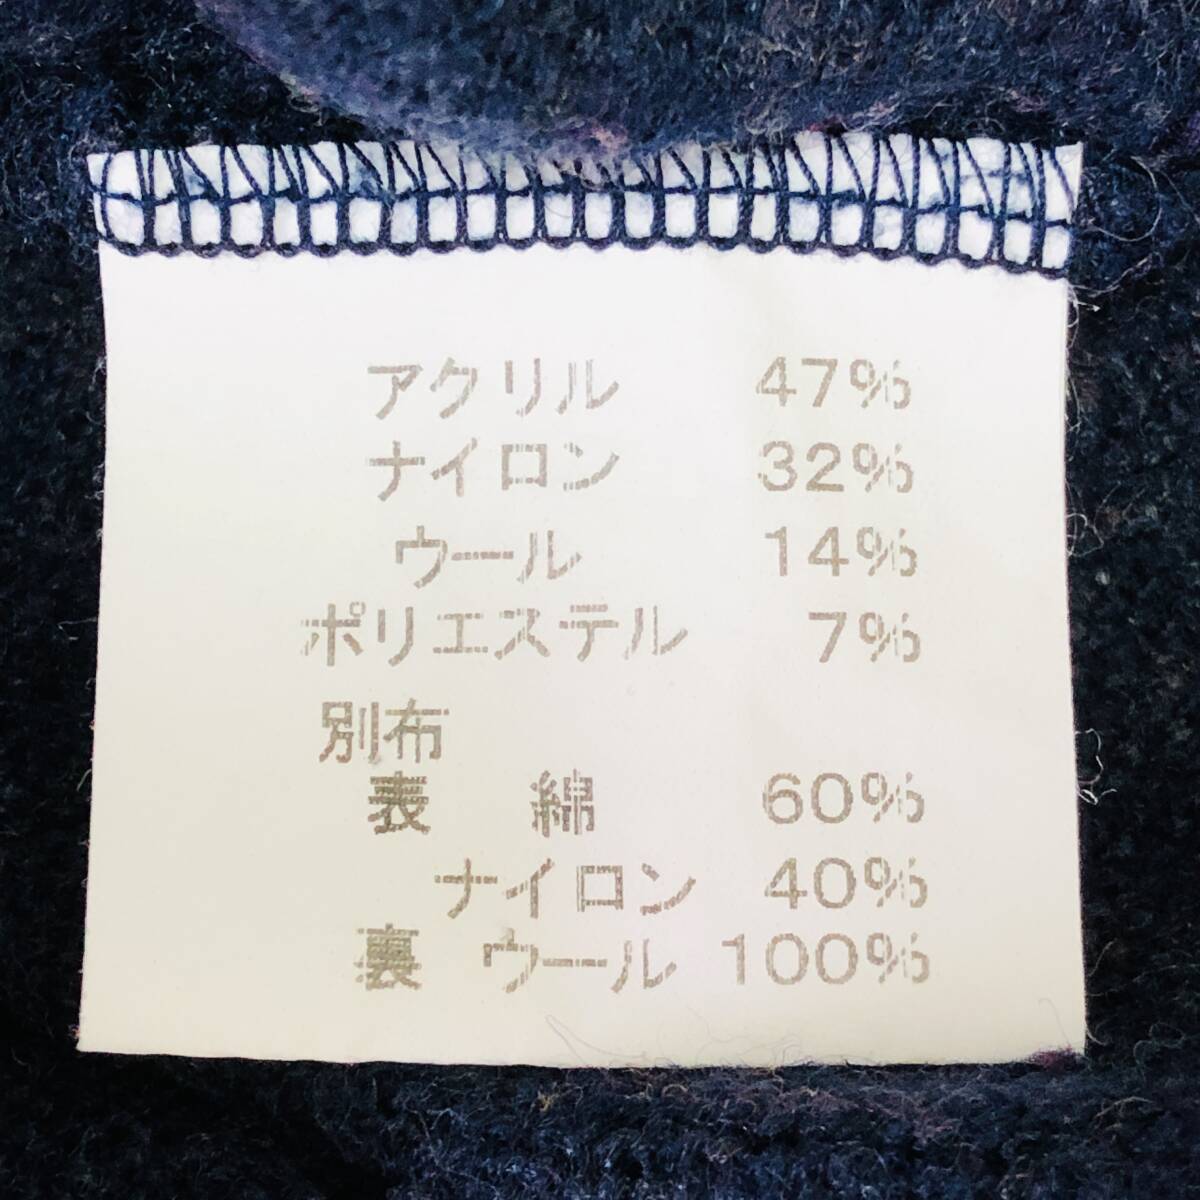 アクリル 47%
ナイロン 32%
ウール 14%
ポリエステル 7%
別布
表 綿 60%
ナイロン 40%
裏 ウール 100%